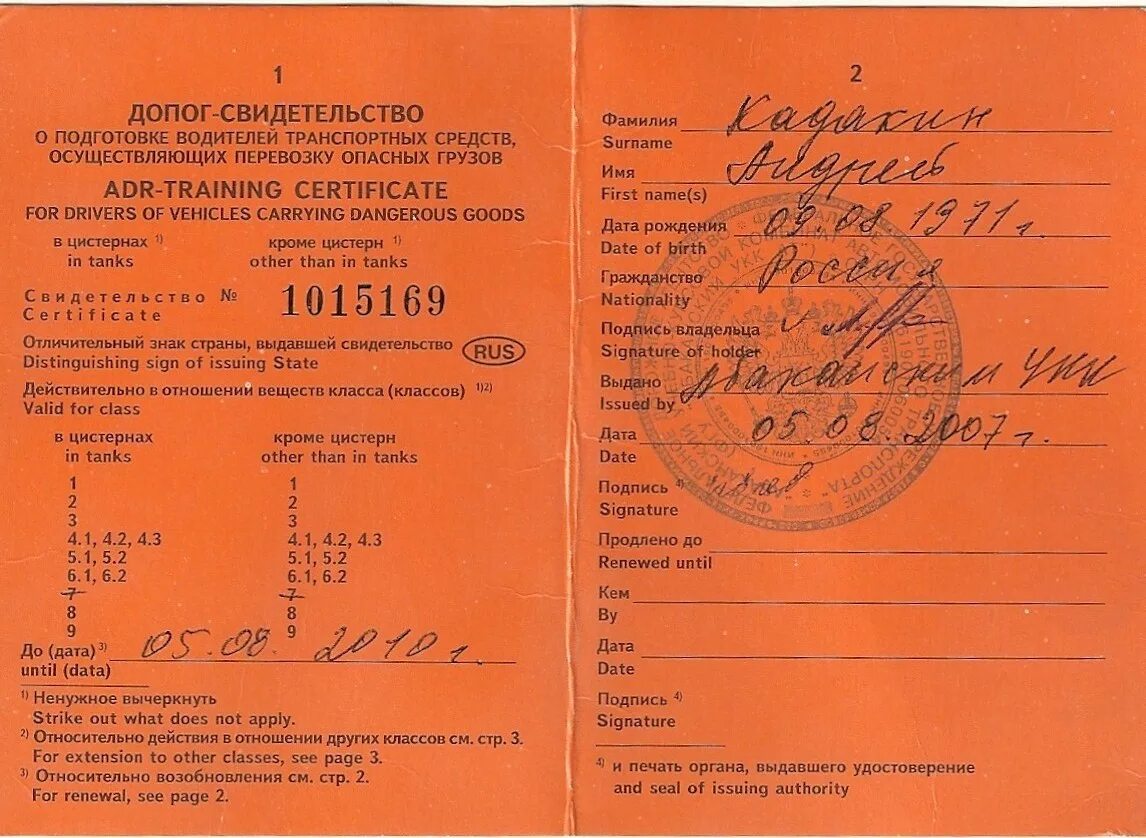 1
ДОПОГ-СВИДЕТЕЛЬСТВО
О ПОДГОТОВКЕ ВОДИТЕЛЕЙ ТРАНСПОРТНЫХ СРЕДСТВ,
ОСУЩЕСТВЛЯЮЩИХ ПЕРЕВОЗКУ ОПАСНЫХ ГРУЗОВ
ADR-TRAINING CERTIFICATE
FOR DRIVERS OF VEHICLES CARRYING DANGEROUS GOODS
в цистернах 1) кроме цистерн 1)
in tanks other than in tanks
Свидетельство № 1015169
Certificate
Отличительный знак страны, выдавшей свидетельство RUS
Distinguishing sign of issuing State
Действительно в отношении веществ класса (классов) 1)2)
Valid for class
в цистернах кроме цистерн
in tanks other than in tanks
1 1
2 2
3 3
4.1, 4.2, 4.3 4.1, 4.2, 4.3
5.1, 5.2 5.1, 5.2
6.1, 6.2 6.1, 6.2
7 7
8 8
9 9
До (дата) 3) 05.08. 2010 г.
until (data)
1) Ненужное вычеркнуть
Strike out what does not apply.
2) Относительно действия в отношении других классов см. стр. 3.
For extension to other classes, see page 3.
3) Относительно возобновления см. стр. 2.
For renewal, see page 2.
2
Фамилия Кадакин
Surname
Имя Андрей
First name(s)
Дата рождения 09.08 1971 г.
Date of birth
Гражданство Россия
Nationality
Подпись владельца
Signature of holder
Выдано Абаканским УКК
Issued by
Дата 05.08.2007 г.
Date
Подпись 4)
Signature
Продлено до
Renewed until
Кем
By
Дата
Date
Подпись 4)
Signature
4) и печать органа, выдавшего удостоверение
and seal of issuing authority